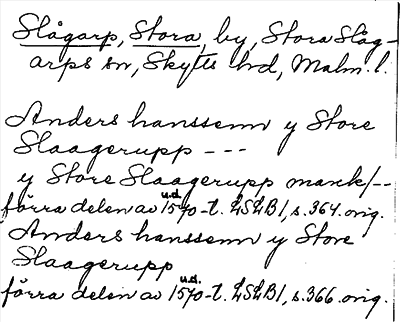 Slågarp, Stora, by, Stora Slåg-
arps sn, Skytts hd, Malm. l.
Anders hanssenn y Store
Slaagerupp ---
y Store Slaagerupp marck/--
förra delen av u.d. 1570-t. LSLB1, s. 364. orig.
Anders hanssenn y Store
Slaagerupp
förra delen av u.d. 1570-t. LSLB1, s. 366. orig.